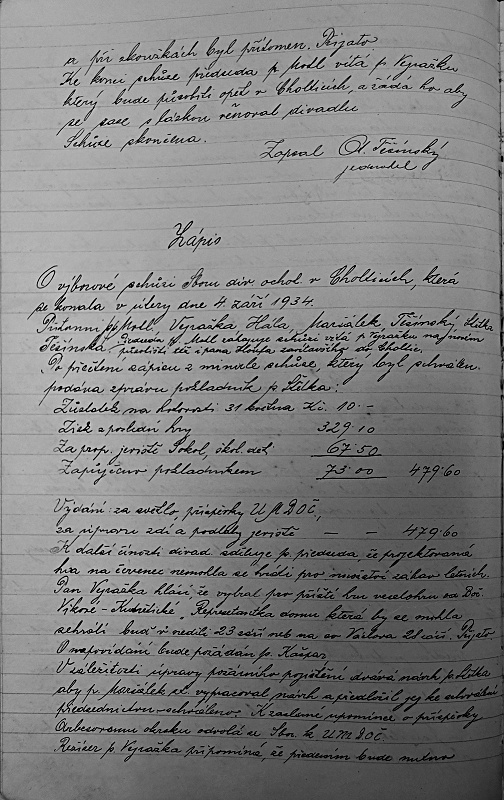 a při zkouškách byl přítomen. Přijato
Ke konci schůze předseda p. Motl vítá p. Vyražku
který bude působiti opět v Cholticích, a žádá ho aby
se zase s láskou věnoval divadlu
Schůze skončena.
Zapsal O. Těšínský
jednatel
Zápis
O výborové schůzi Sboru div. ochot. v Cholticích, která
se konala v úterý dne 4. září 1934.
Přítomni pp. Motl, Vyražka, Hála, Maršálek, Těšínský, Stětka
Těšínská. Předseda p. Motl zahajuje schůzi vítá p. Vyražku na novém
působišti též i pana do Choltic.
Po přečtení zápisu z minulé schůze, který byl schválen
podává zprávu pokladník p. Stětka:
Zůstatek na hotovosti 31 května Kč. 10.-
Zisk z poslední hry 329.10
Za prop. jeviště Sokol, škol. děti 67.50
Zapůjčeno pokladníkem 73.00 479.60
Vydání: za světlo, příspěvky ÚMDOČ,
za úpravu zdí a podlahy jeviště — — 479.60
K další činosti divad. sděluje p. předseda, že projektovaná
hra na červenec nemohla se hráti pro množství zábav letních.
Pan Vyražka hlásí, že vybral pro příští hru veselohru od Boč.
Vikové - Kunětické „Reprezentantka domu která by se mohla
sehráti buď v neděli 23 září neb na sv. Václava 28 září. Přijato
O napovídání bude požádán p. Kašpar
V záležitosti úpravy požárního pojištění dává návrh p. Stětka
aby p. Maršálek st. vypracoval návrh a předložil jej ke schválení
předsednictvu - schváleno. K zaslané upomínce o příspěvky
okrsku odvolá se Sbor k ÚMDOČ.
Režisér p. Vyražka připomíná, že předem bude nutno